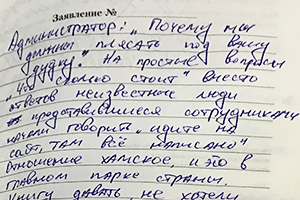 Заявление №
Администратор: „Почему мы
должны плясать под вашу
дудку". На простые вопросы
„что сколько стоит" вместо
ответов неизвестные люди
представившиеся сотрудниками
начали говорить „идите на
сайт, там всё написано"
Отношение хамское, и это в
главном парке страны.
книгу давать не хотели